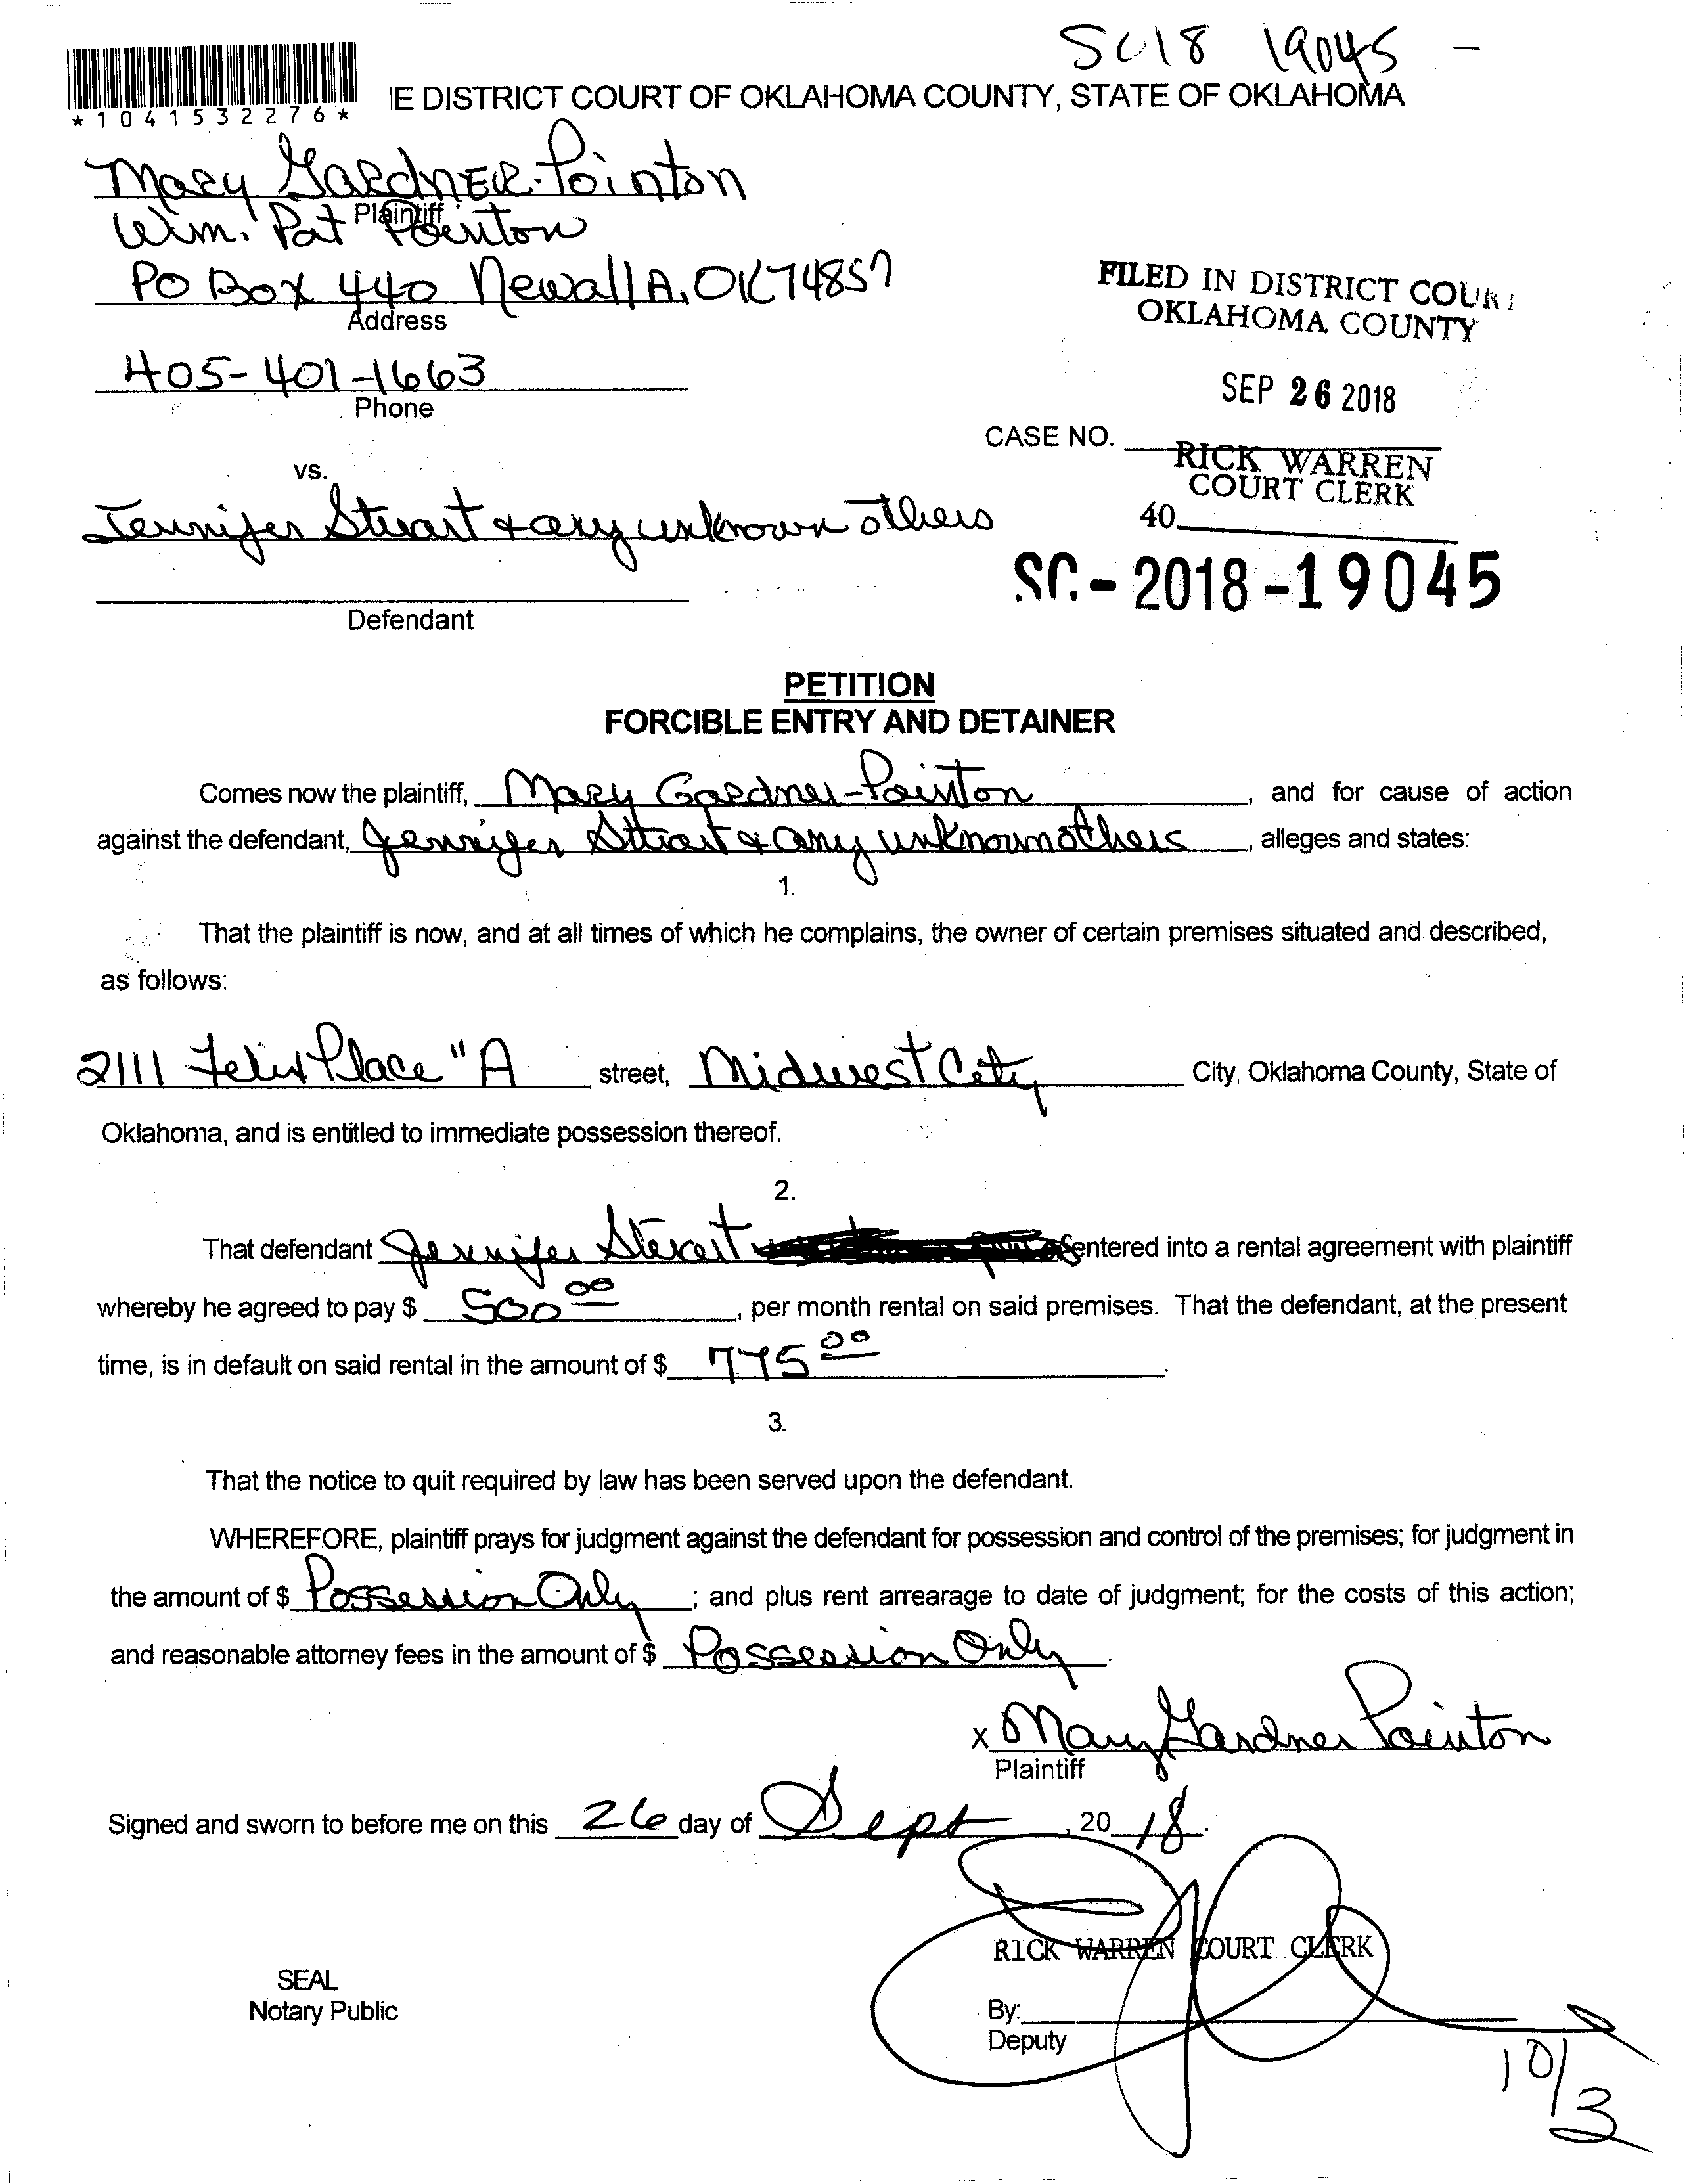 SC18 19045 -
*1041532276*
E DISTRICT COURT OF OKLAHOMA COUNTY, STATE OF OKLAHOMA
Mary Gardner-Pointon
Plaintiff
Wm. Pat Pointon
PO Box 440 Newalla, OK 74857
Address
405-401-1663
Phone
FILED IN DISTRICT COURT
OKLAHOMA COUNTY
SEP 26 2018
CASE NO.
RICK WARREN
COURT CLERK
40
vs.
Jennifer Stuart & any unknown others
SC-2018-19045
Defendant
PETITION
FORCIBLE ENTRY AND DETAINER
Comes now the plaintiff, Mary Gardner-Pointon, and for cause of action
against the defendant, Jennifer Stuart & any unknown others, alleges and states:
1.
That the plaintiff is now, and at all times of which he complains, the owner of certain premises situated and described,
as follows:
2111 Felix Place "A street, Midwest City City, Oklahoma County, State of
Oklahoma, and is entitled to immediate possession thereof.
2.
That defendant Jennifer Stuart entered into a rental agreement with plaintiff
whereby he agreed to pay $ 500 00, per month rental on said premises. That the defendant, at the present
time, is in default on said rental in the amount of $ 775 00.
3.
That the notice to quit required by law has been served upon the defendant.
WHEREFORE, plaintiff prays for judgment against the defendant for possession and control of the premises; for judgment in
the amount of $ Possession Only; and plus rent arrearage to date of judgment; for the costs of this action;
and reasonable attorney fees in the amount of $ Possession Only.
x Mary Gardner Pointon
Plaintiff
Signed and sworn to before me on this 26 day of Sept, 2018.
RICK WARREN COURT CLERK
SEAL
Notary Public
By:
Deputy
10/3